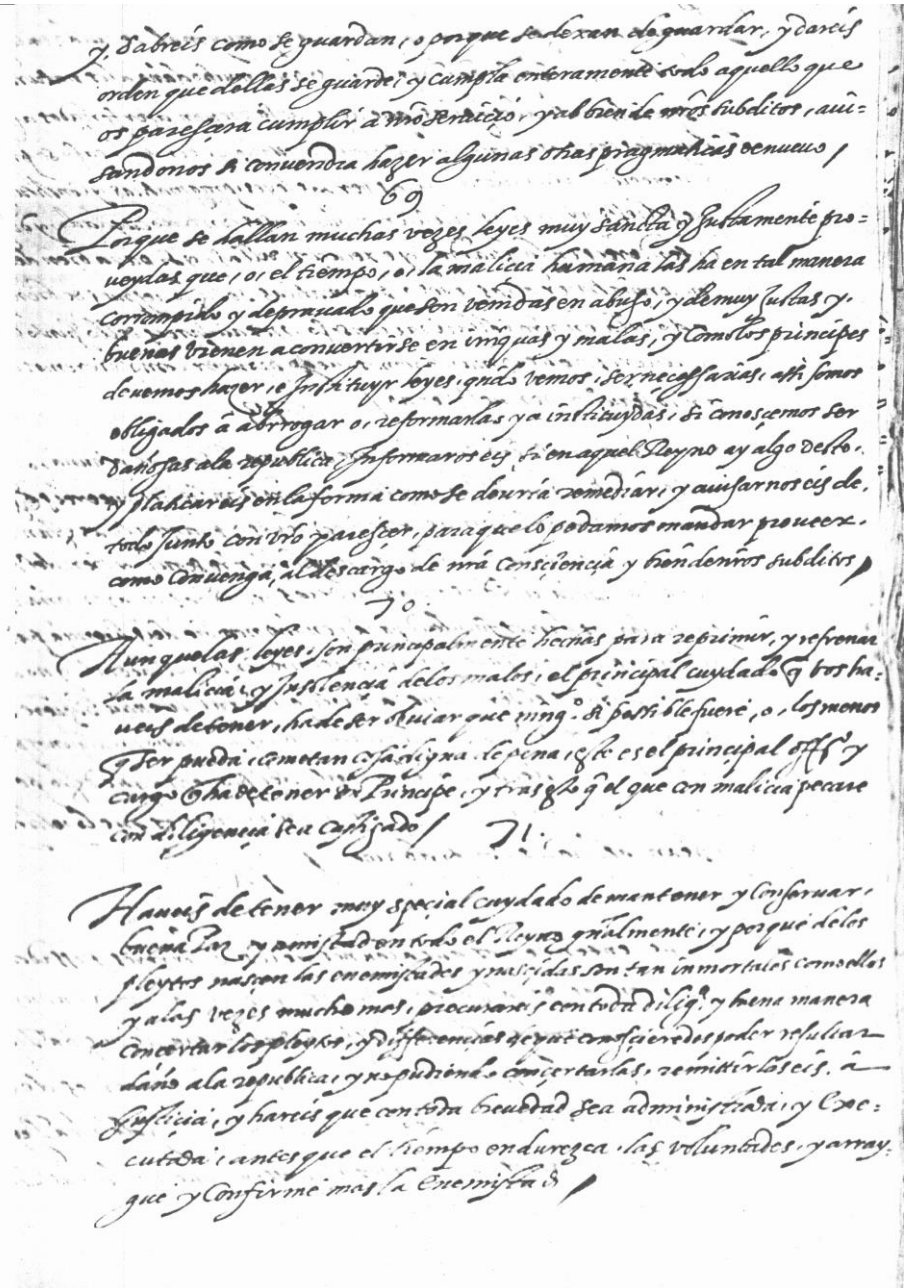 y sabreis como se guardan, o porque se dexan de guardar, y dareis
orden que dellas se guarde, y cumpla enteramente todo aquello que
os paresçera cumplir a nrõ seruiçio, y al bien de nrõs subditos, aui=
sandonos si conuendra hazer algunas otras pragmaticas de nueuo /
69
Porque se hallan muchas vezes leyes muy sancta y Justamente pro=
ueydas que, o, el tiempo, o, la malicia humana las ha en tal manera
corrompido y deprauado que son venidas en abuso, y de muy Justas y
buenas vienen a conuertirse en iniquas y malas, y como los principes
deuemos hazer, e Instituyr leyes, qndo vemos, ser necessarias, assi somos
obligados â abrrogar o, reformarlas ya instituydas, si conoscemos ser
dañosas a la republica, Informaros eis, si en aquel Reyno ay algo desto,
y platicareis en la forma como se deuria remediar, y auisarnos eis de
todo Junto con vrõ paresçer, para que lo podamos mandar proueer
como conuenga, al descargo de nrã consçiençia y bien de nrõs subditos /
70
Aunque las leyes, son principalmente hechas para reprimir, y refrenar
la malicia, y Insolençia de los malos, el principal cuydado q̃ vos ha=
ueis de tener, ha de ser obuiar que ning.º si possible fuere, o, los menos
q̃ ser pueda, cometan cosa digna de pena, este es el principal off.º y
cargo q̃ ha de tener el Prinçipe, y tras esto q̃ el que con malicia pecare
con diligençia sea castigado / 71.
Haueis de tener muy special cuydado de mantener y Conseruar,
buena Paz y amistad en todo el Reyno gñalmente, y porque de los
pleytos nascen las enemistades y nascidas son tan inmortales como ellos
y a las vezes mucho mas, procurareis con toda dilig.ª y buena manera
concertar los pleytos, y differencias de que conosçieredes poder resultar
daño a la republica, y no pudiendo conçertarlas, remittirlos eis, â
Justiçia, y hareis que con toda breuedad sea administrada, y Exe=
cutada, antes que el tiempo endurezca las voluntades, y array=
gue y Confirme mas la Enemistad /